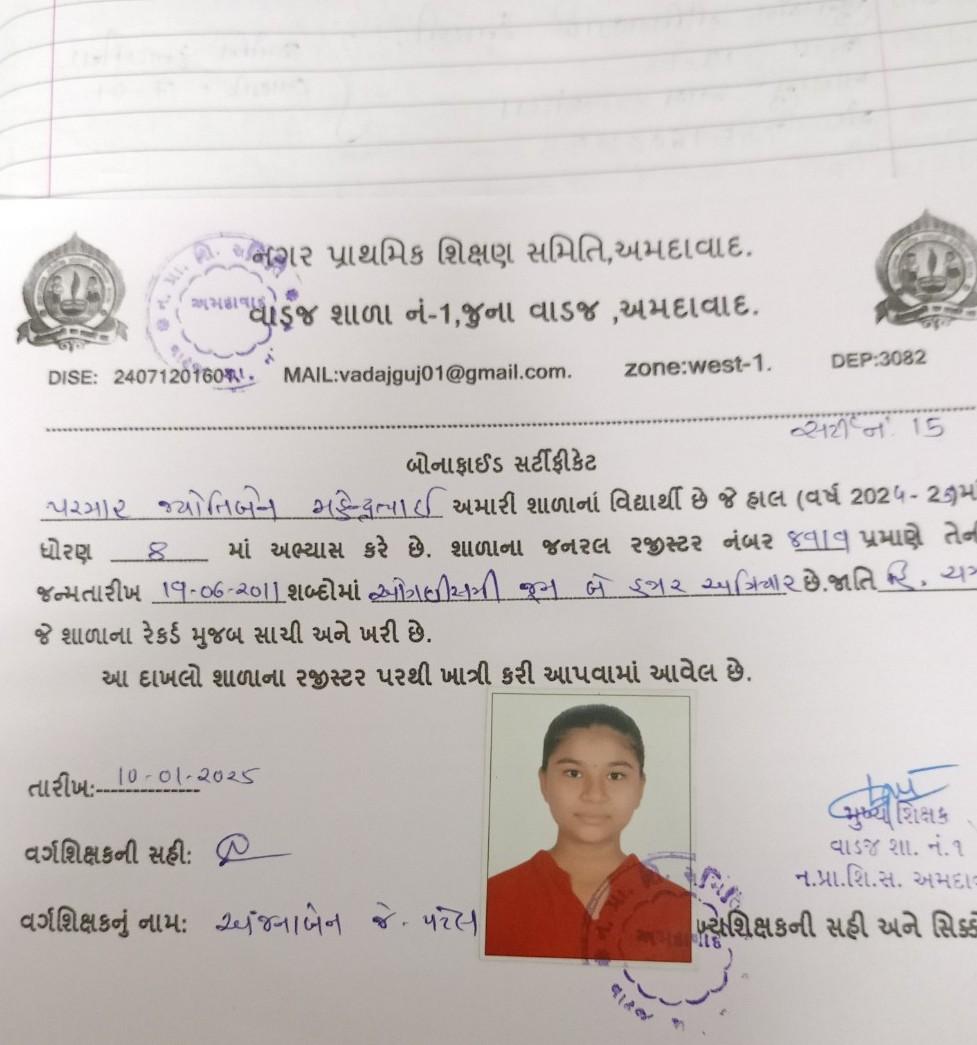 નગર પ્રાથમિક શિક્ષણ સમિતિ,અમદાવાદ.
વાડજ શાળા નં-1,જુના વાડજ ,અમદાવાદ.
DISE: 240712016 MAIL:vadajguj01@gmail.com. zone:west-1. DEP:3082
સર્ટી નં. 15
બોનાફાઈડ સર્ટીફીકેટ
પરમાર જ્યોતિબેન મહેન્દ્રભાઈ અમારી શાળાનાં વિદ્યાર્થી છે જે હાલ (વર્ષ 2024 - 25)માં
ધોરણ 8 માં અભ્યાસ કરે છે. શાળાના જનરલ રજીસ્ટર નંબર પ્રમાણે તેન
જન્મતારીખ 19-06-2011 શબ્દોમાં ઓગણીસમી જૂન બે હજાર અગિયાર છે.જાતિ હિ.
જે શાળાના રેકર્ડ મુજબ સાચી અને ખરી છે.
આ દાખલો શાળાના રજીસ્ટર પરથી ખાત્રી કરી આપવામાં આવેલ છે.
તારીખ: 10-01-2025
મુખ્ય શિક્ષક
વાડજ શા. નં.૧
ન.પ્રા.શિ.સ. અમદા
વર્ગશિક્ષકની સહી:
વર્ગશિક્ષકનું નામ: અંજનાબેન જે. પટેલ ખ્યશિક્ષકની સહી અને સિક્કો